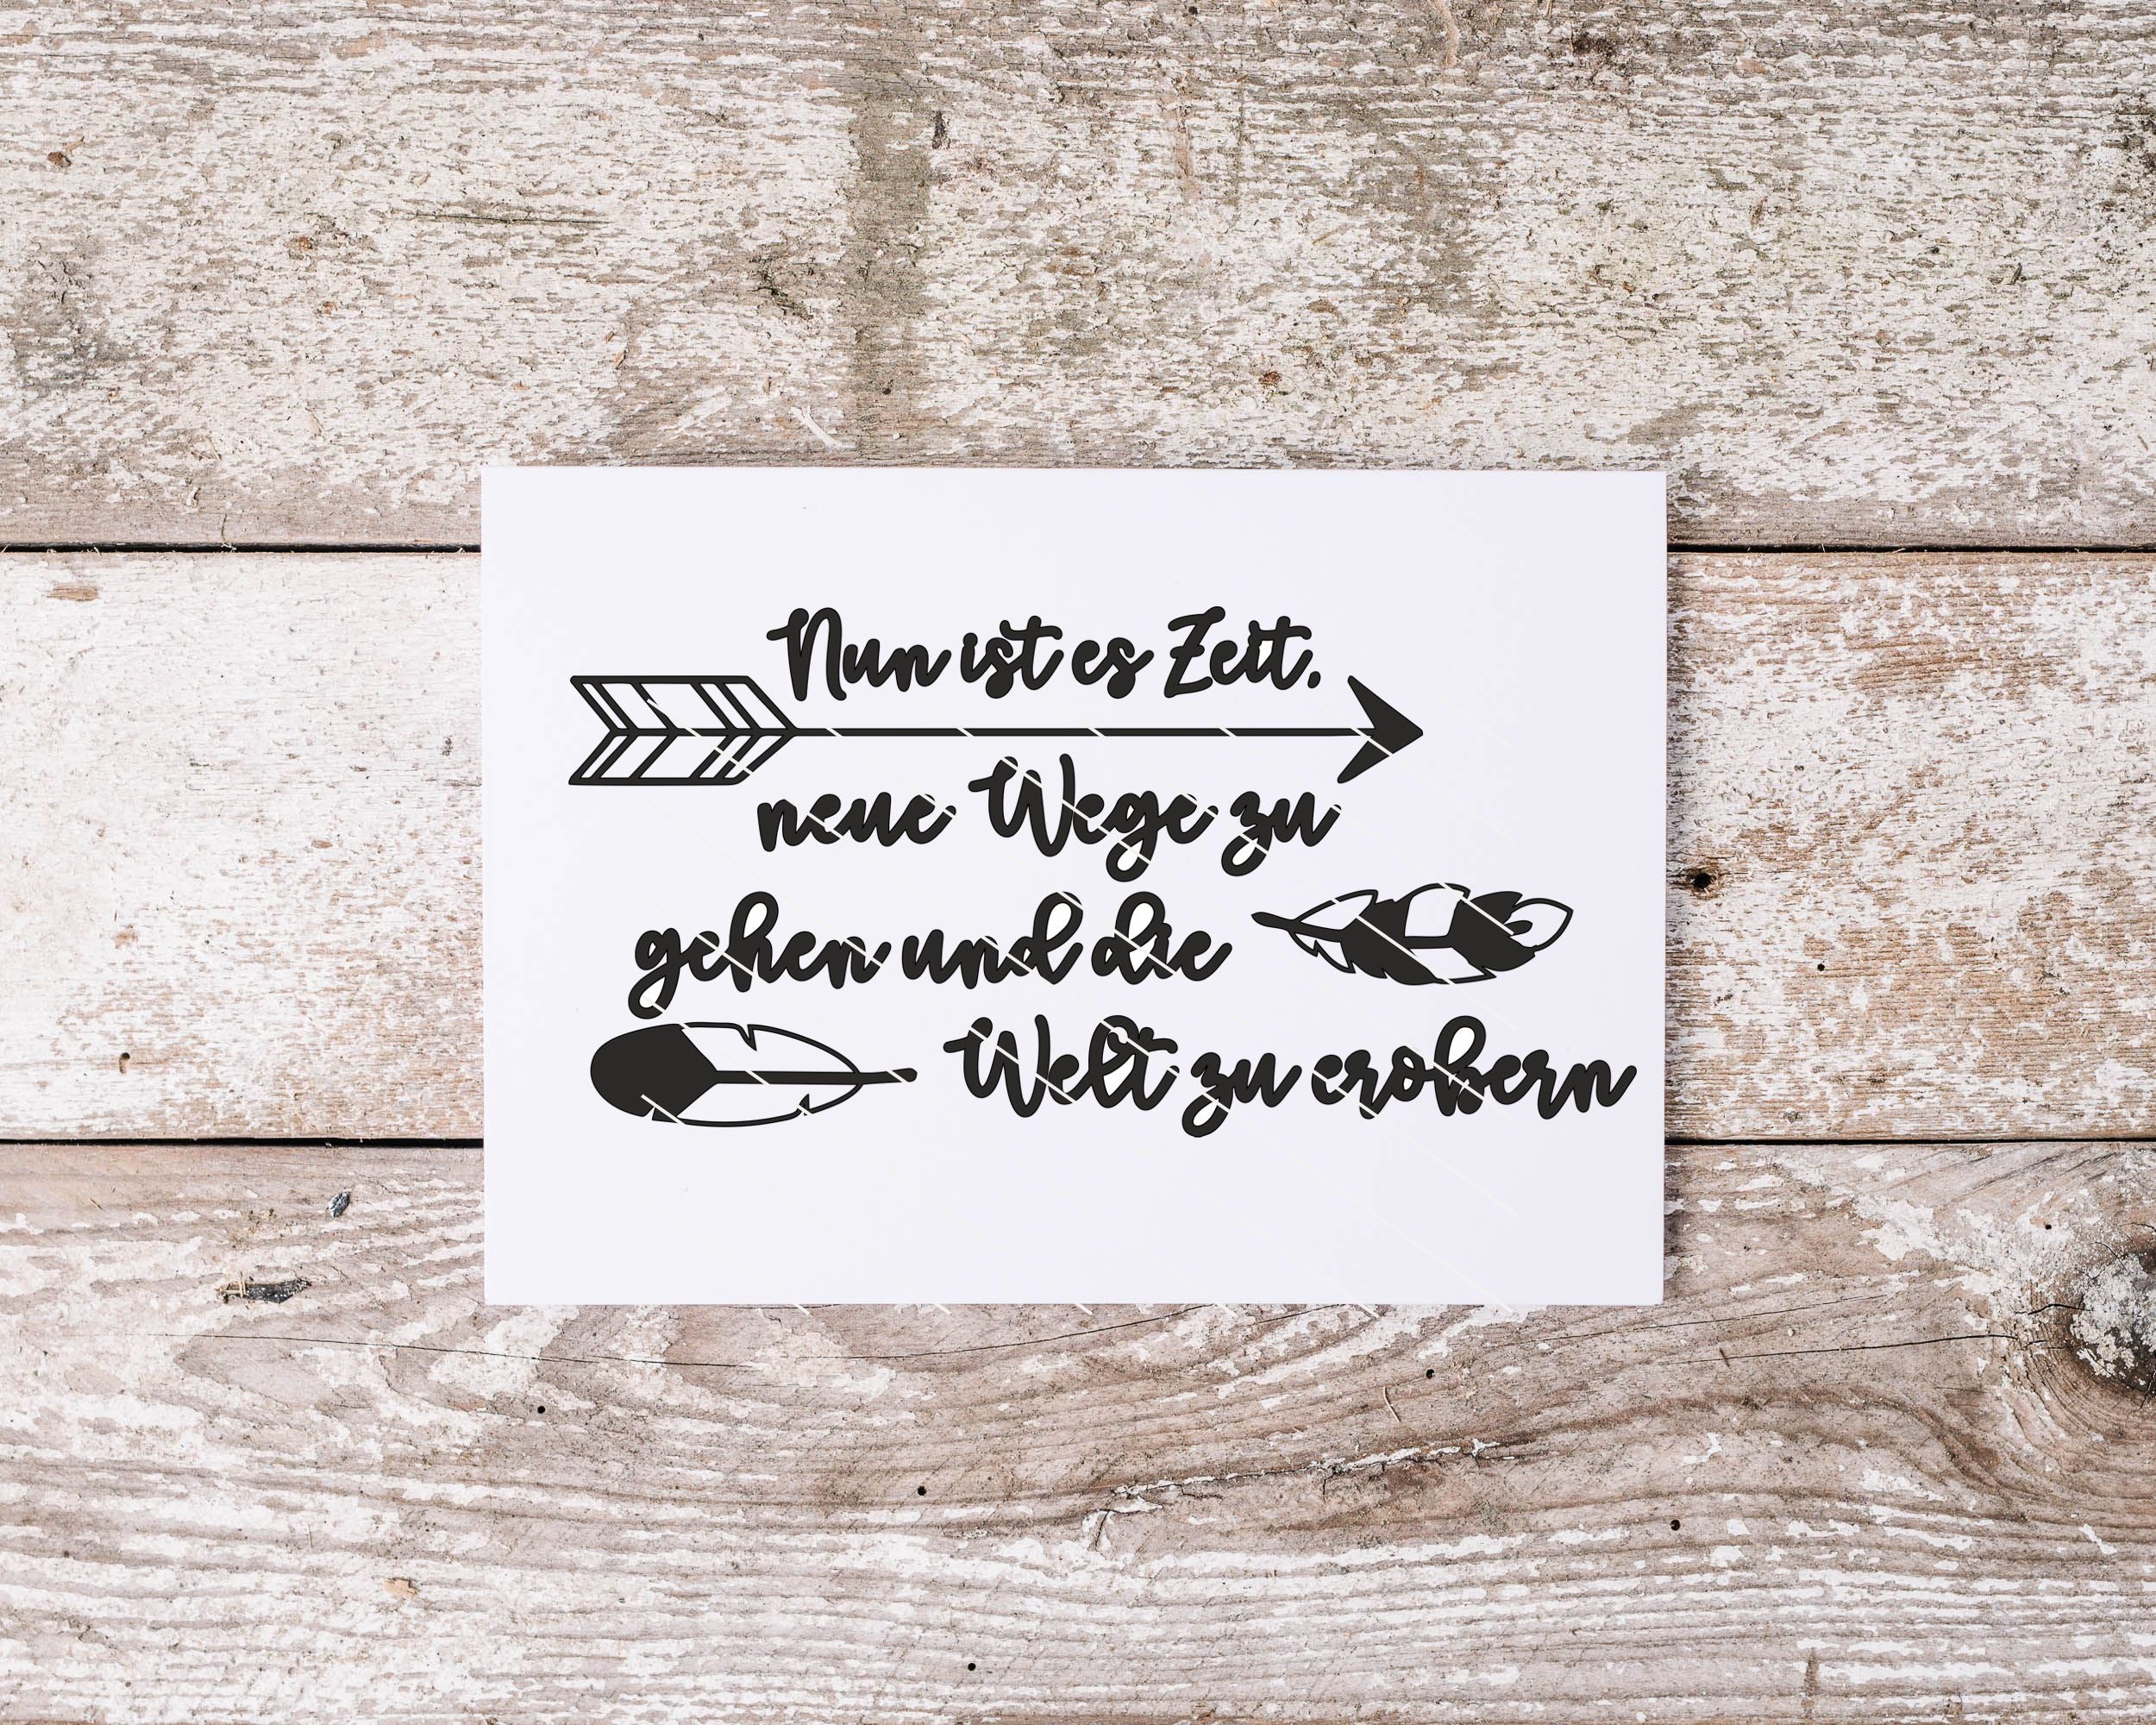 Nun ist es Zeit,
neue Wege zu
gehen und die
Welt zu erobern